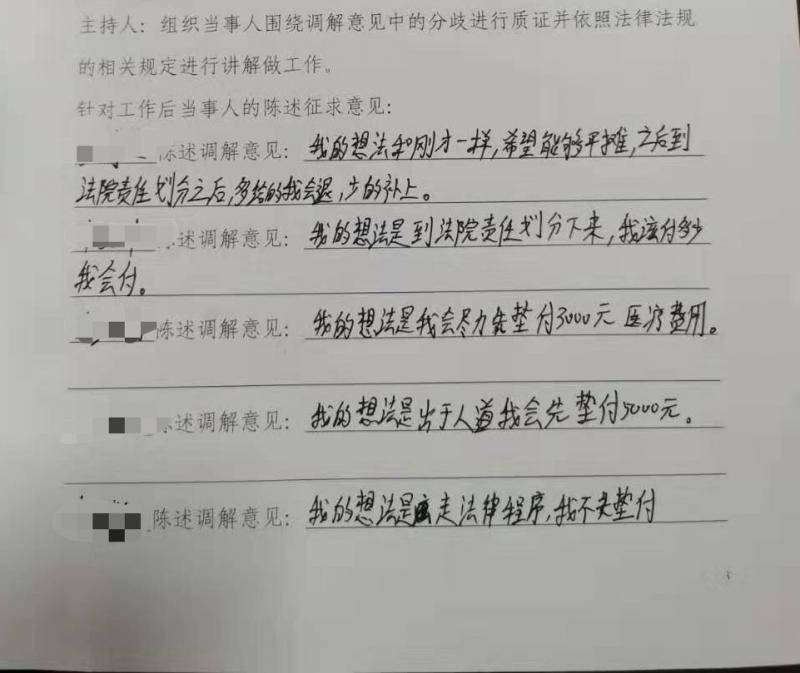 主持人：组织当事人围绕调解意见中的分歧进行质证并依照法律法规
的相关规定进行讲解做工作。
针对工作后当事人的陈述征求意见：
陈述调解意见：我的想法和刚才一样，希望能够平摊，之后到
法院责任划分之后，多给的我会退，少的补上。
陈述调解意见：我的想法是到法院责任划分下来，我该付多少
我会付。
陈述调解意见：我的想法是我会尽力先垫付3000元医疗费用。
陈述调解意见：我的想法是出于人道我会先垫付5000元。
陈述调解意见：我的想法是走法律程序，我不垫付
3